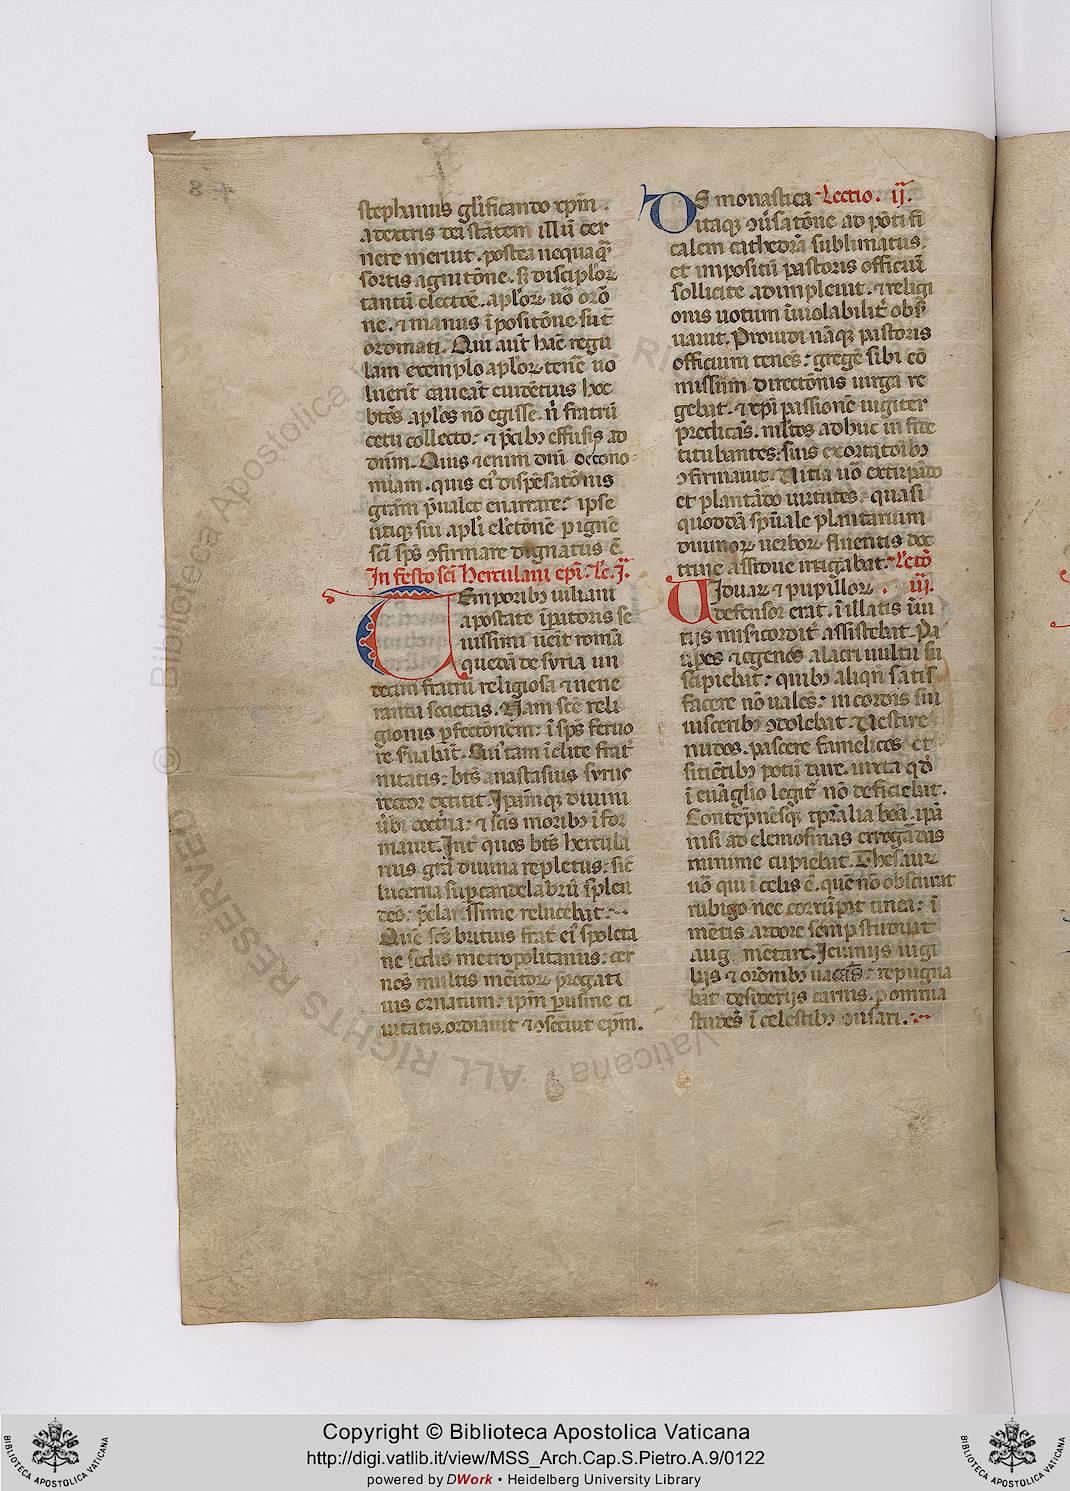 stephanus gl'ificando xpm̄
a dextris dei stātem illū cer
nere meruit. postea nequaq̄
sortis agnitōne. sꝫ disciploꝝ
tantū electōe. aploꝝ uō orō
ne. ⁊ manus īpositōne sūt
ordinati. Qui aūt hāc regu
lam exemplo aploꝝ tenē uo
luerīt caueāt
btōs aplōs nō egisse. n̄ fratrū
cetu collecto: ⁊ p̄cibꝫ effusis ad
dnm̄. Quis ⁊enim dnī oecono-
miam. quis eī dispēsatōnis
grām p̄ualet enarrare: ipse
utiqꝫ sui apl'i electōnē
scī sps̄ ꝯfirmare dignatus ē
In festo scī Herculani epī. Le. j.ͣ
Temporibꝫ iuliani
apostate īpatoris se
uissimi uēit romā
quedā de syria un
decim fratrū religiosa ⁊ uene
randa societas. Nam scē reli
gionis pfectōnem: ī sps̄ feruo
re
nitatis: btūs anastasius syrus
rector extitit. Ipamqꝫ diuini
ūbi doctrīa: ⁊ scīs moribꝫ īfor
mauit. Int' quos btūs hercula
nus grā diuina repletus: sic
lucerna sup candelabrū splen
des: p̄clarissime relucebat:~
Quē scs̄ britius frat' eī spoleta
ne sedis metropolitanus: cer
nēs multis meritoꝝ p̄rogati
uis ornatum: ipm̄ pusine ci
uitatis. ordīauit ⁊ ꝯsec̄uit epm̄.
DE monastica Lectio. ij.ͣ
uitaqꝫ ꝯūsatōne ad pōtifi
calem cathedrā sublimatus:
et impositū pastoris officiū
sollicite adimpleuit. ⁊ religi
onis uotum īuiolabilit' obs̄
uauit. Prouidi nāqꝫ pastoris
officium tenēs: gregē sibi cō
missum directōnis uirga re
gebat. ⁊ xpi passionē iugiter
predicās. ml'tos adhuc in fide
titubantes: suis exortatōibꝫ
ꝯfirmauit. Uitia uō extirpādo
et plantādo uirtutes: quasi
quoddā spūale plantarium
diuinoꝝ uerboꝝ fluentis doc
trine assidue irrigabat. Lecō
Uiduaꝝ ⁊ pupilloꝝ . iij.ͣ
defensor erat. ī illatis īiu
rijs misicordit' assistebat. Pa
upes ⁊ egenos alacri uultu su
scipiebat: quibꝫ aliqn̄ satis
facere nō ualēs: in cordis sui
uisceribꝫ ꝯdolebat. Uestire
nudos. pascere famelicos et
sitiētibꝫ potū dare. iuxta qđ
ī euāglio legit' nō deficiebat.
Contēpnēsqꝫ tp̄ralia bōa. ipā
nisi ad elemosinas errogādas
minime cupiebat. Thesauꝝ
uō qui ī celis ē. quē nō obscurat
rubigo nec corrūpit tinea: ī
mētis ardore semp studuit
aug metare. Jeiunijs uigi
lijs ⁊ orōnibꝫ uacās: repugna
bat desiderijs carnis. p omnia
studēs ī celestibꝫ ꝯūsari.:~
© Biblioteca Apostolica Vaticana
ALL RIGHTS RESERVED
Copyright © Biblioteca Apostolica Vaticana
http://digi.vatlib.it/view/MSS_Arch.Cap.S.Pietro.A.9/0122
powered by DWork • Heidelberg University Library
BIBLIOTECA APOSTOLICA VATICANA
BIBLIOTECA APOSTOLICA VATICANA